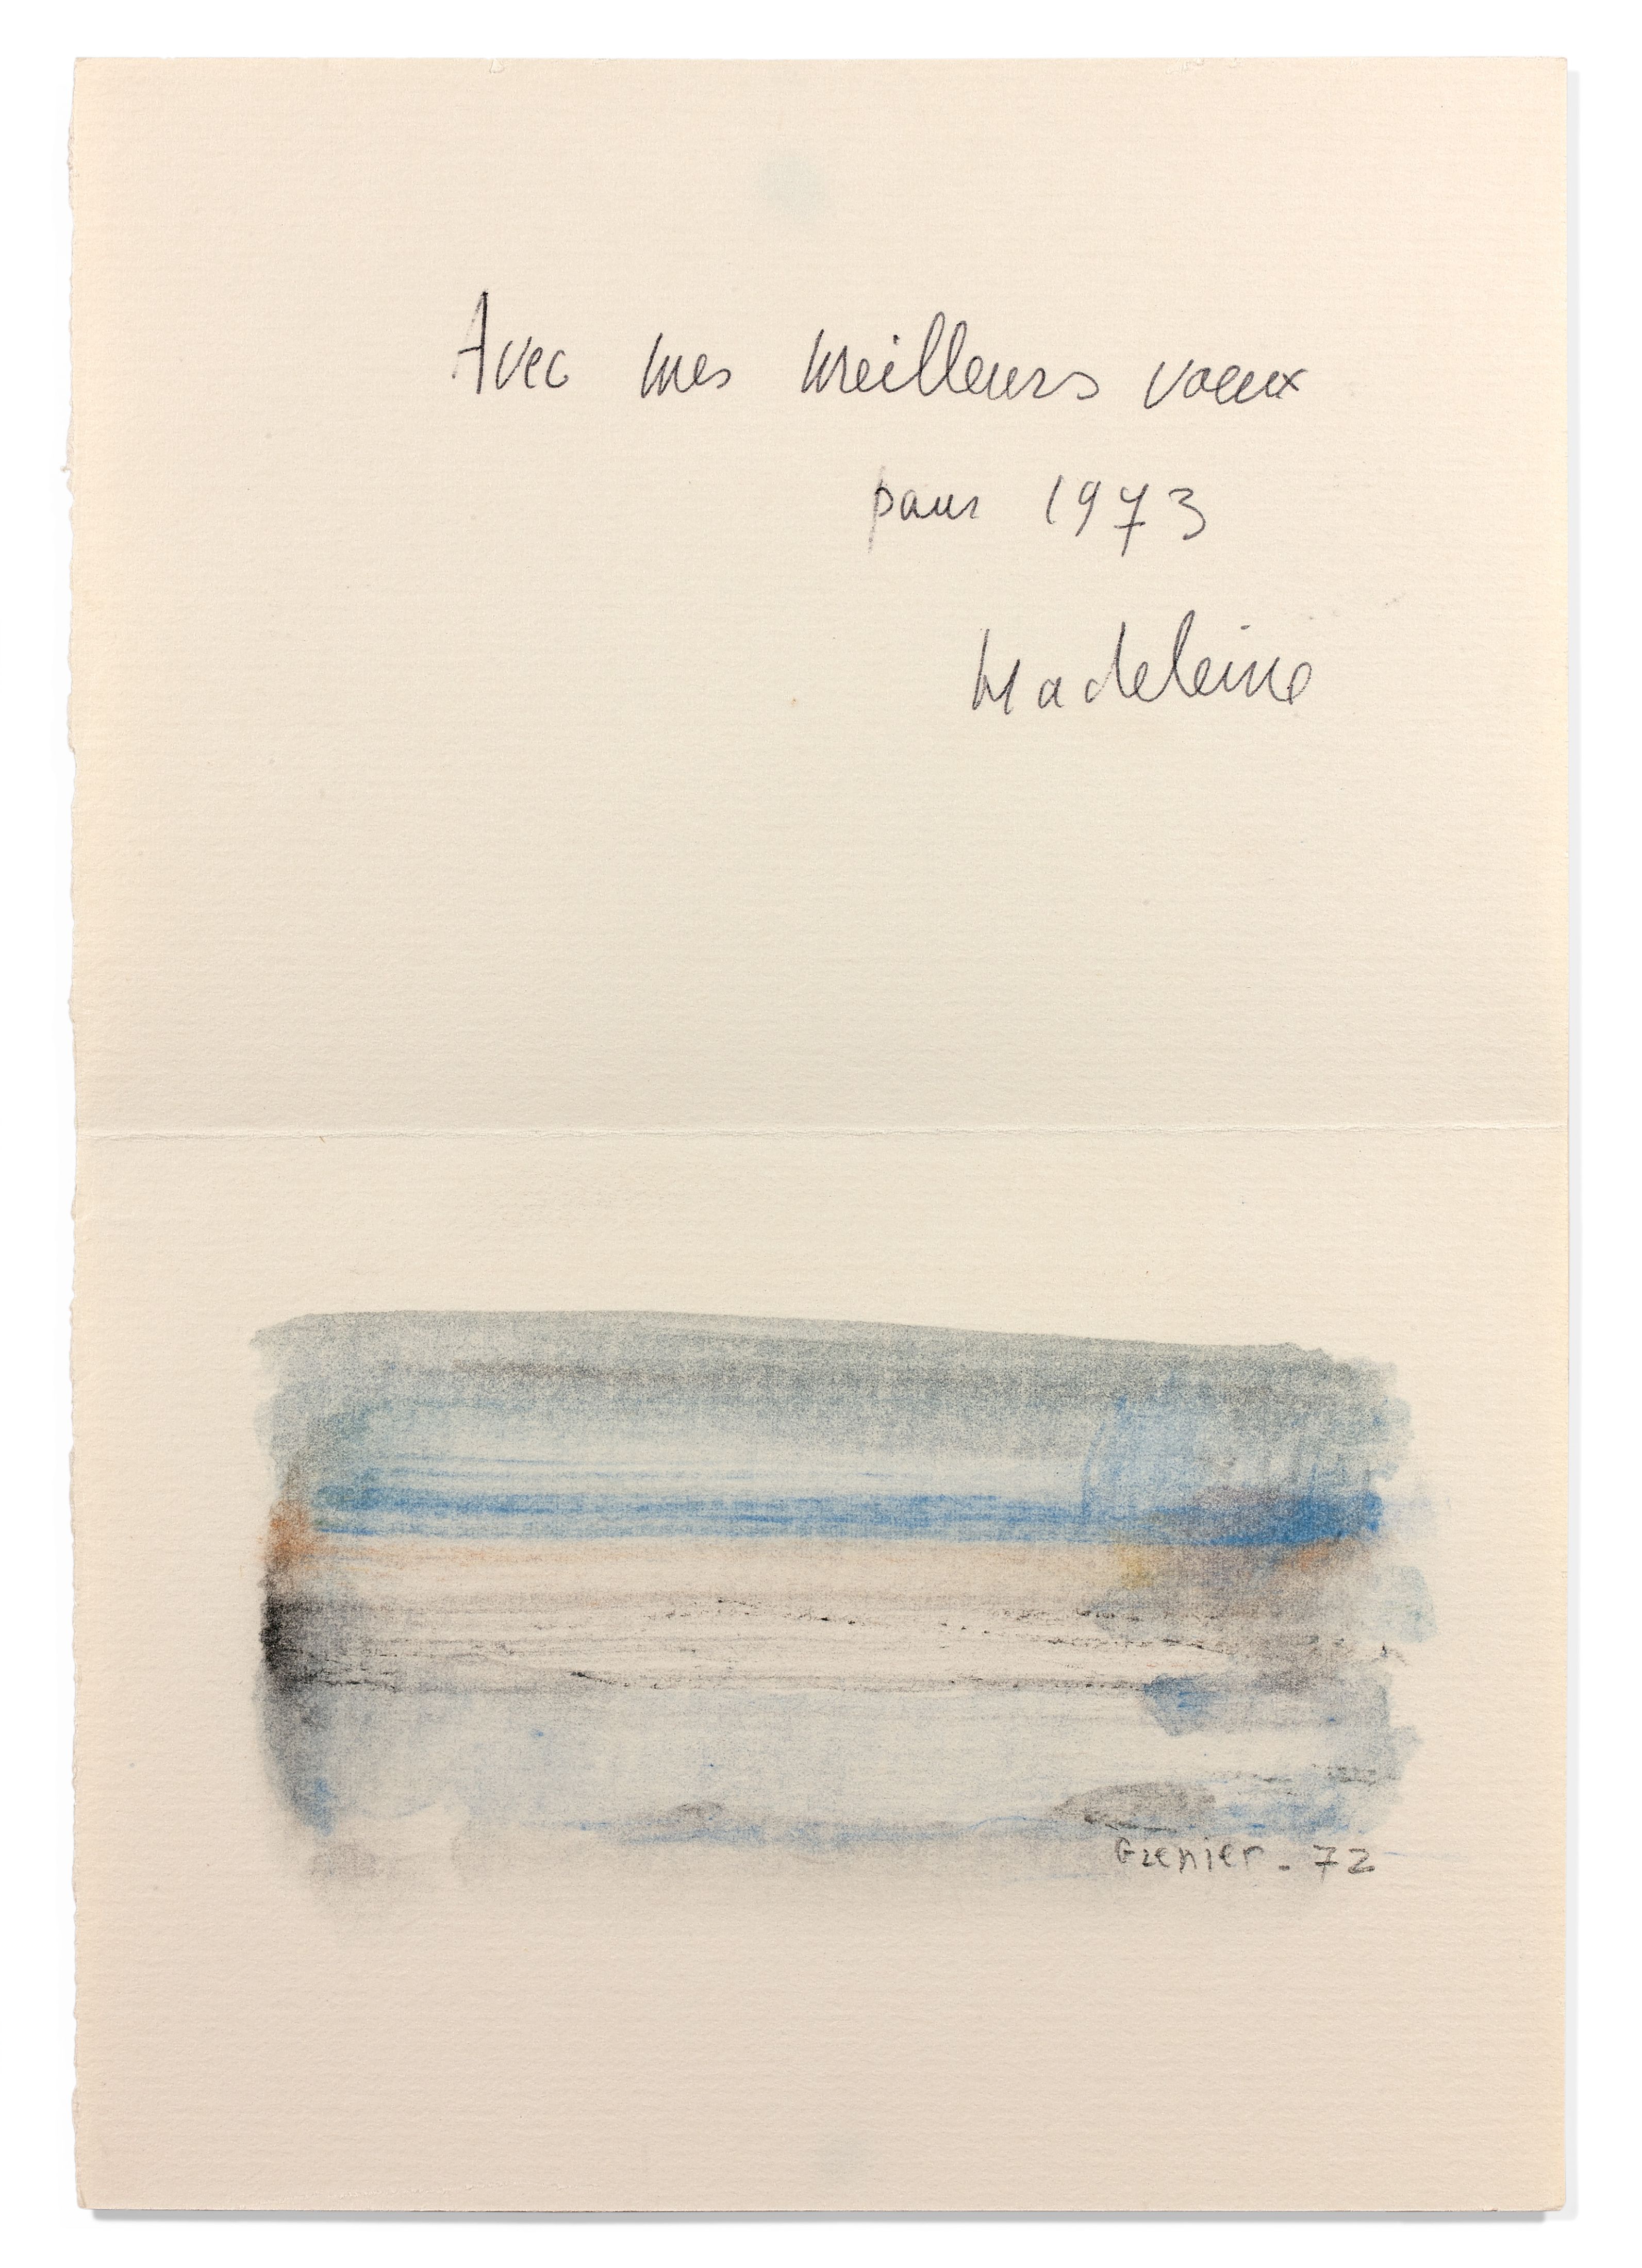 Avec mes meilleurs voeux
pour 1973
Madeleine
Grenier - 72